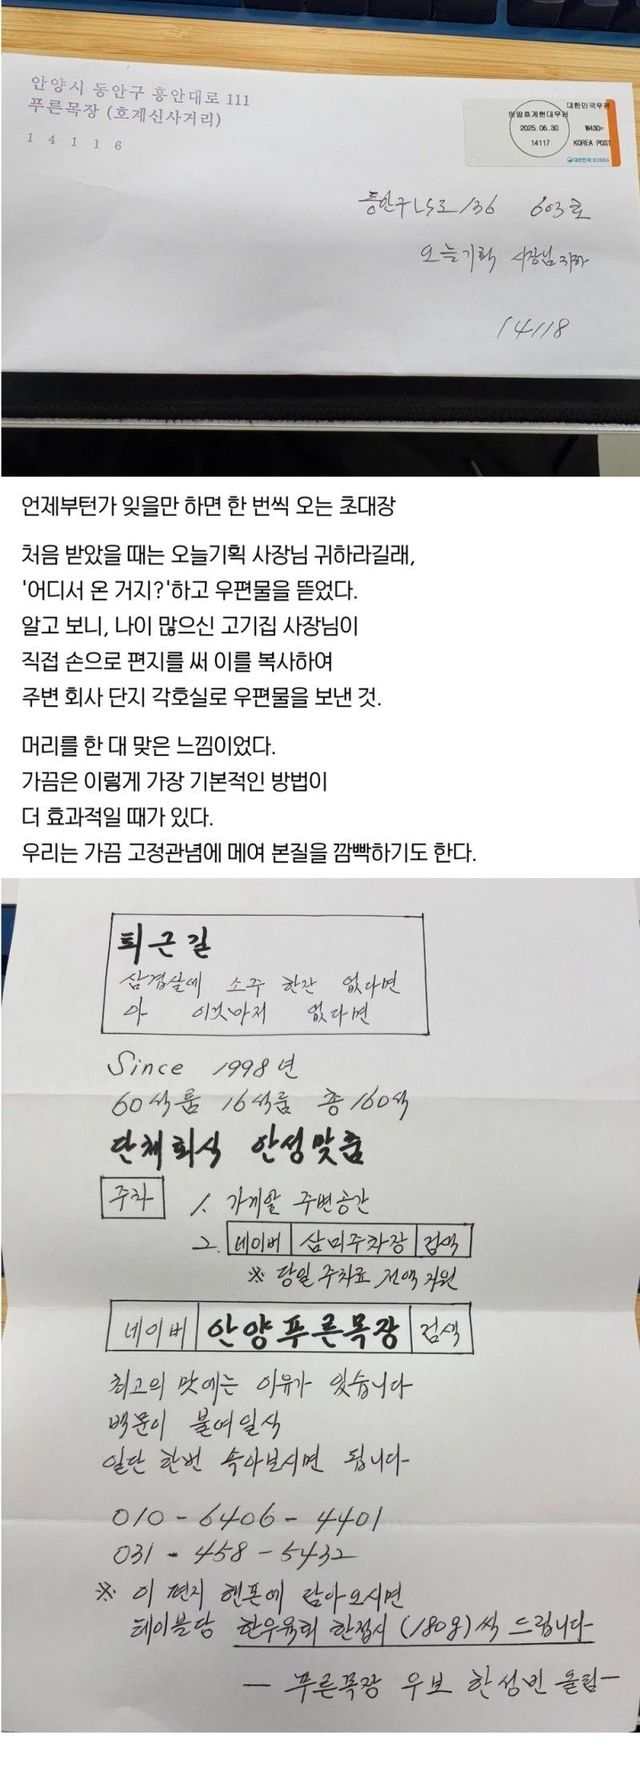 안양시 동안구 흥안대로 111
푸른목장 (호계신사거리)
1 4 1 1 6
대한민국우표
안양호계현대우체
2025.06.30
₩430=
14117
KOREA POST
대한민국 KOREA
동안구 LS로 136 603호
오늘기획 사장님 귀하
14118
언제부턴가 잊을만 하면 한 번씩 오는 초대장
처음 받았을 때는 오늘기획 사장님 귀하라길래,
'어디서 온 거지?'하고 우편물을 뜯었다.
알고 보니, 나이 많으신 고기집 사장님이
직접 손으로 편지를 써 이를 복사하여
주변 회사 단지 각호실로 우편물을 보낸 것.
머리를 한 대 맞은 느낌이었다.
가끔은 이렇게 가장 기본적인 방법이
더 효과적일 때가 있다.
우리는 가끔 고정관념에 메여 본질을 깜빡하기도 한다.
퇴근길
삼겹살에 소주 한잔 없다면
아 이것마저 없다면
Since 1998년
60석룸 16석룸 총 160석
단체회식 안성맞춤
주차 1. 가게앞 주변공간
2. 네이버 삼미주차장 검색
※ 당일 주차료 전액 지원
네이버 안양푸른목장 검색
최고의 맛에는 이유가 있습니다
백문이 불여일식
일단 한번 속아보시면 됩니다
010-6406-4401
031-458-5432
※ 이 편지 핸폰에 담아오시면
테이블당 한우육회 한접시 (180g)씩 드립니다
- 푸른목장 우보 한성빈 올림 -